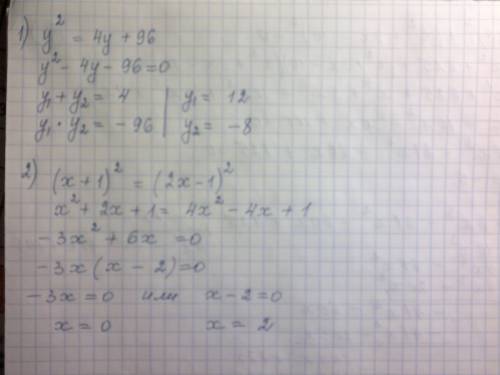 1) y² = 4y + 96
y² - 4y - 96 = 0
y₁ + y₂ = 4 | y₁ = 12
y₁ · y₂ = - 96 | y₂ = -8
2) (x + 1)² = (2x - 1)²
x² + 2x + 1 = 4x² - 4x + 1
- 3x² + 6x = 0
- 3x (x - 2) = 0
- 3x = 0 или x - 2 = 0
x = 0 x = 2